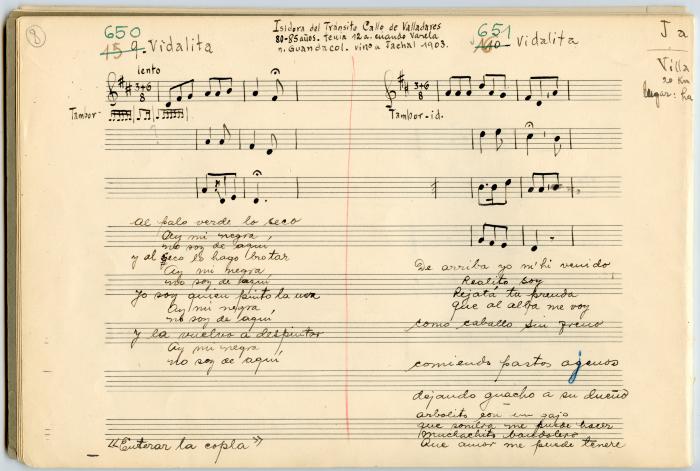 8
650
15 9. Vidalita
Isidora del Tránsito Calle de Valladares
80-85 años. tenía 12 a. cuando Varela
n. Guandacol. vino a Jachal 1903.
651
Vidalita
Ja
Villa
20 Km
lugar:
lento
3+6
8
3+6
8
Tambor-
Tambor-id.
Al palo verde lo seco
Ay mi negra,
no soy de aquí
y al seco lo hago brotar
Ay mi negra,
no soy de aquí
Yo soy quien pinto la uva
Ay mi negra,
no soy de aquí
y la vuelvo a despintar
Ay mi negra,
no soy de aquí
"Enterar la copla"
De arriba yo m'hi venido
Realito soy
Rejatá tu prenda
que al alba me voy
como caballo sin freno
comiendo pastos ajenos
dejando guacho a su dueño
arbolito con un gajo
que sombra me puede hacer
muchachito bandolero
que amor me puede tener